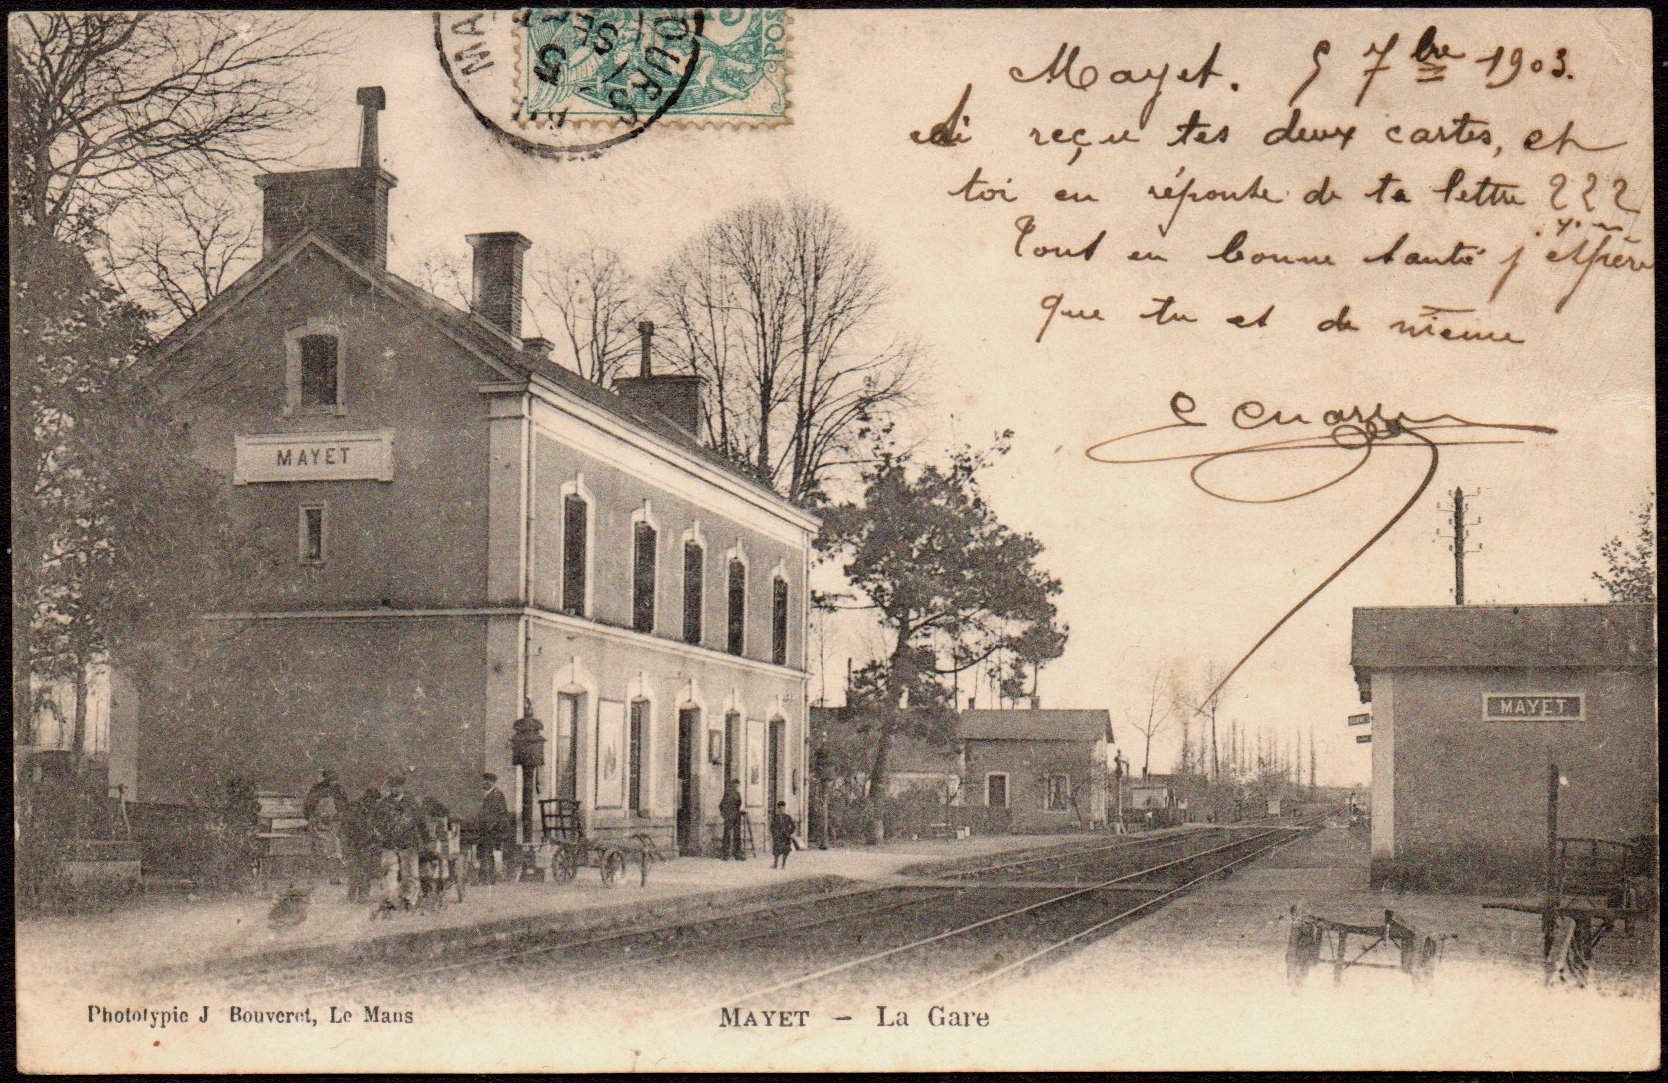 Mayet. 5 7bre 1903.
ai reçu tes deux cartes, et
toi en réponse de ta lettre ???
Tout en bonne santé j'espère
que tu et de même
MAYET
MAYET
TOURS
POS
Phototypie J Bouveret, Le Mans
MAYET — La Gare